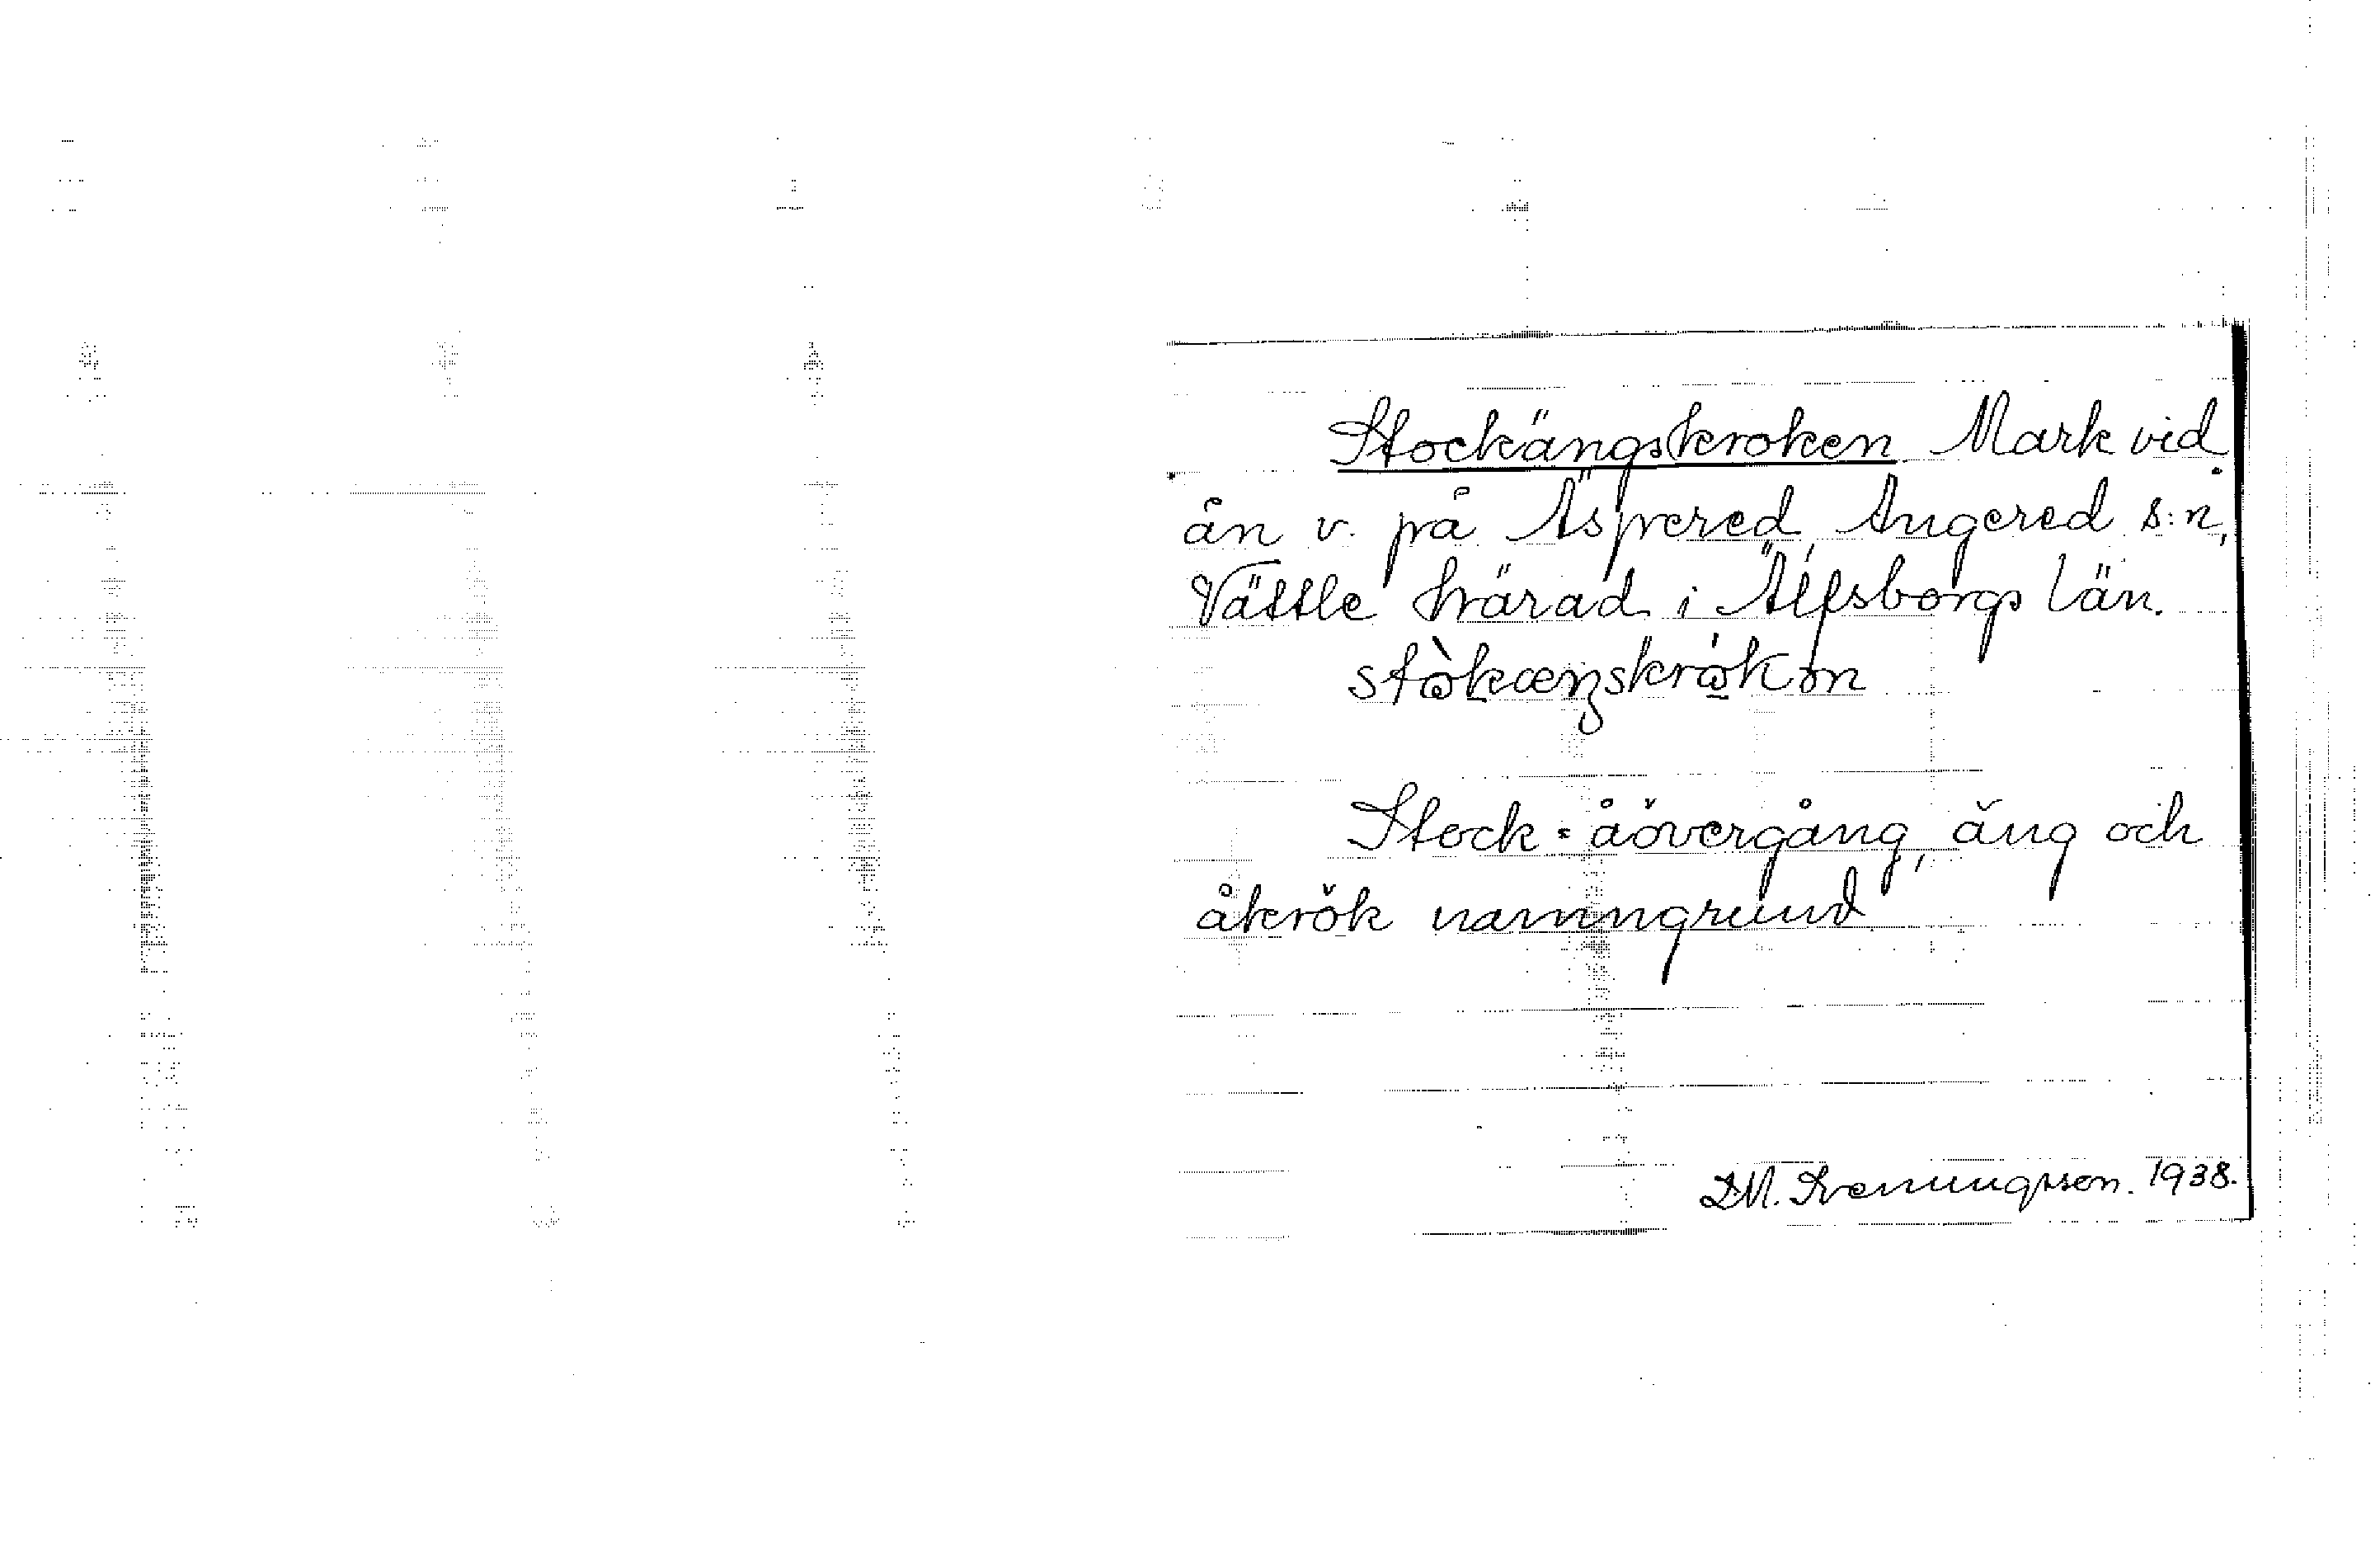 Stockängskroken. Mark vid
ån v. på Äspered, Angered s:n,
Vättle härad i Älfsborgs län.
Stock = åövergång, äng och
åkrök namngrund
D.M. Svenungsson. 1938.